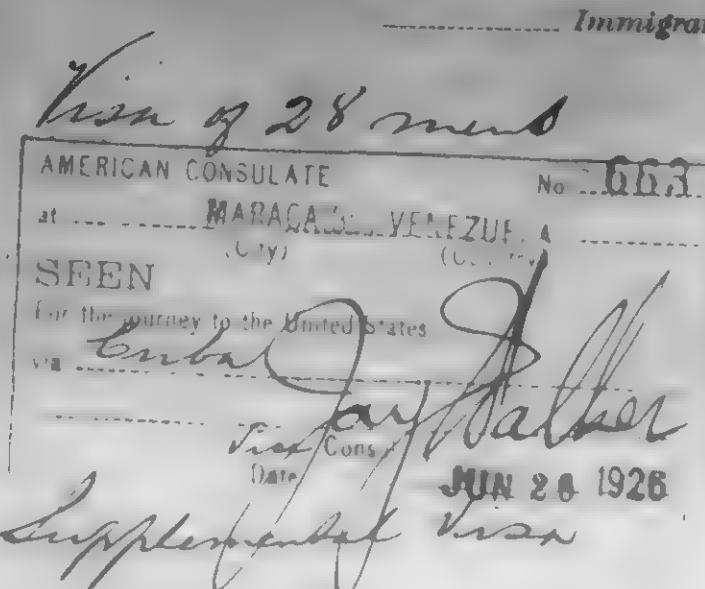 Immigra
Visa of 28 men
AMERICAN CONSULATE No 663
at MARACAI VENEZUE A
(City) (Country)
SEEN
For the journey to the United States
via Cuba
Jay Walker
Vice Consul
Date JUN 28 1926
Supplemental Visa